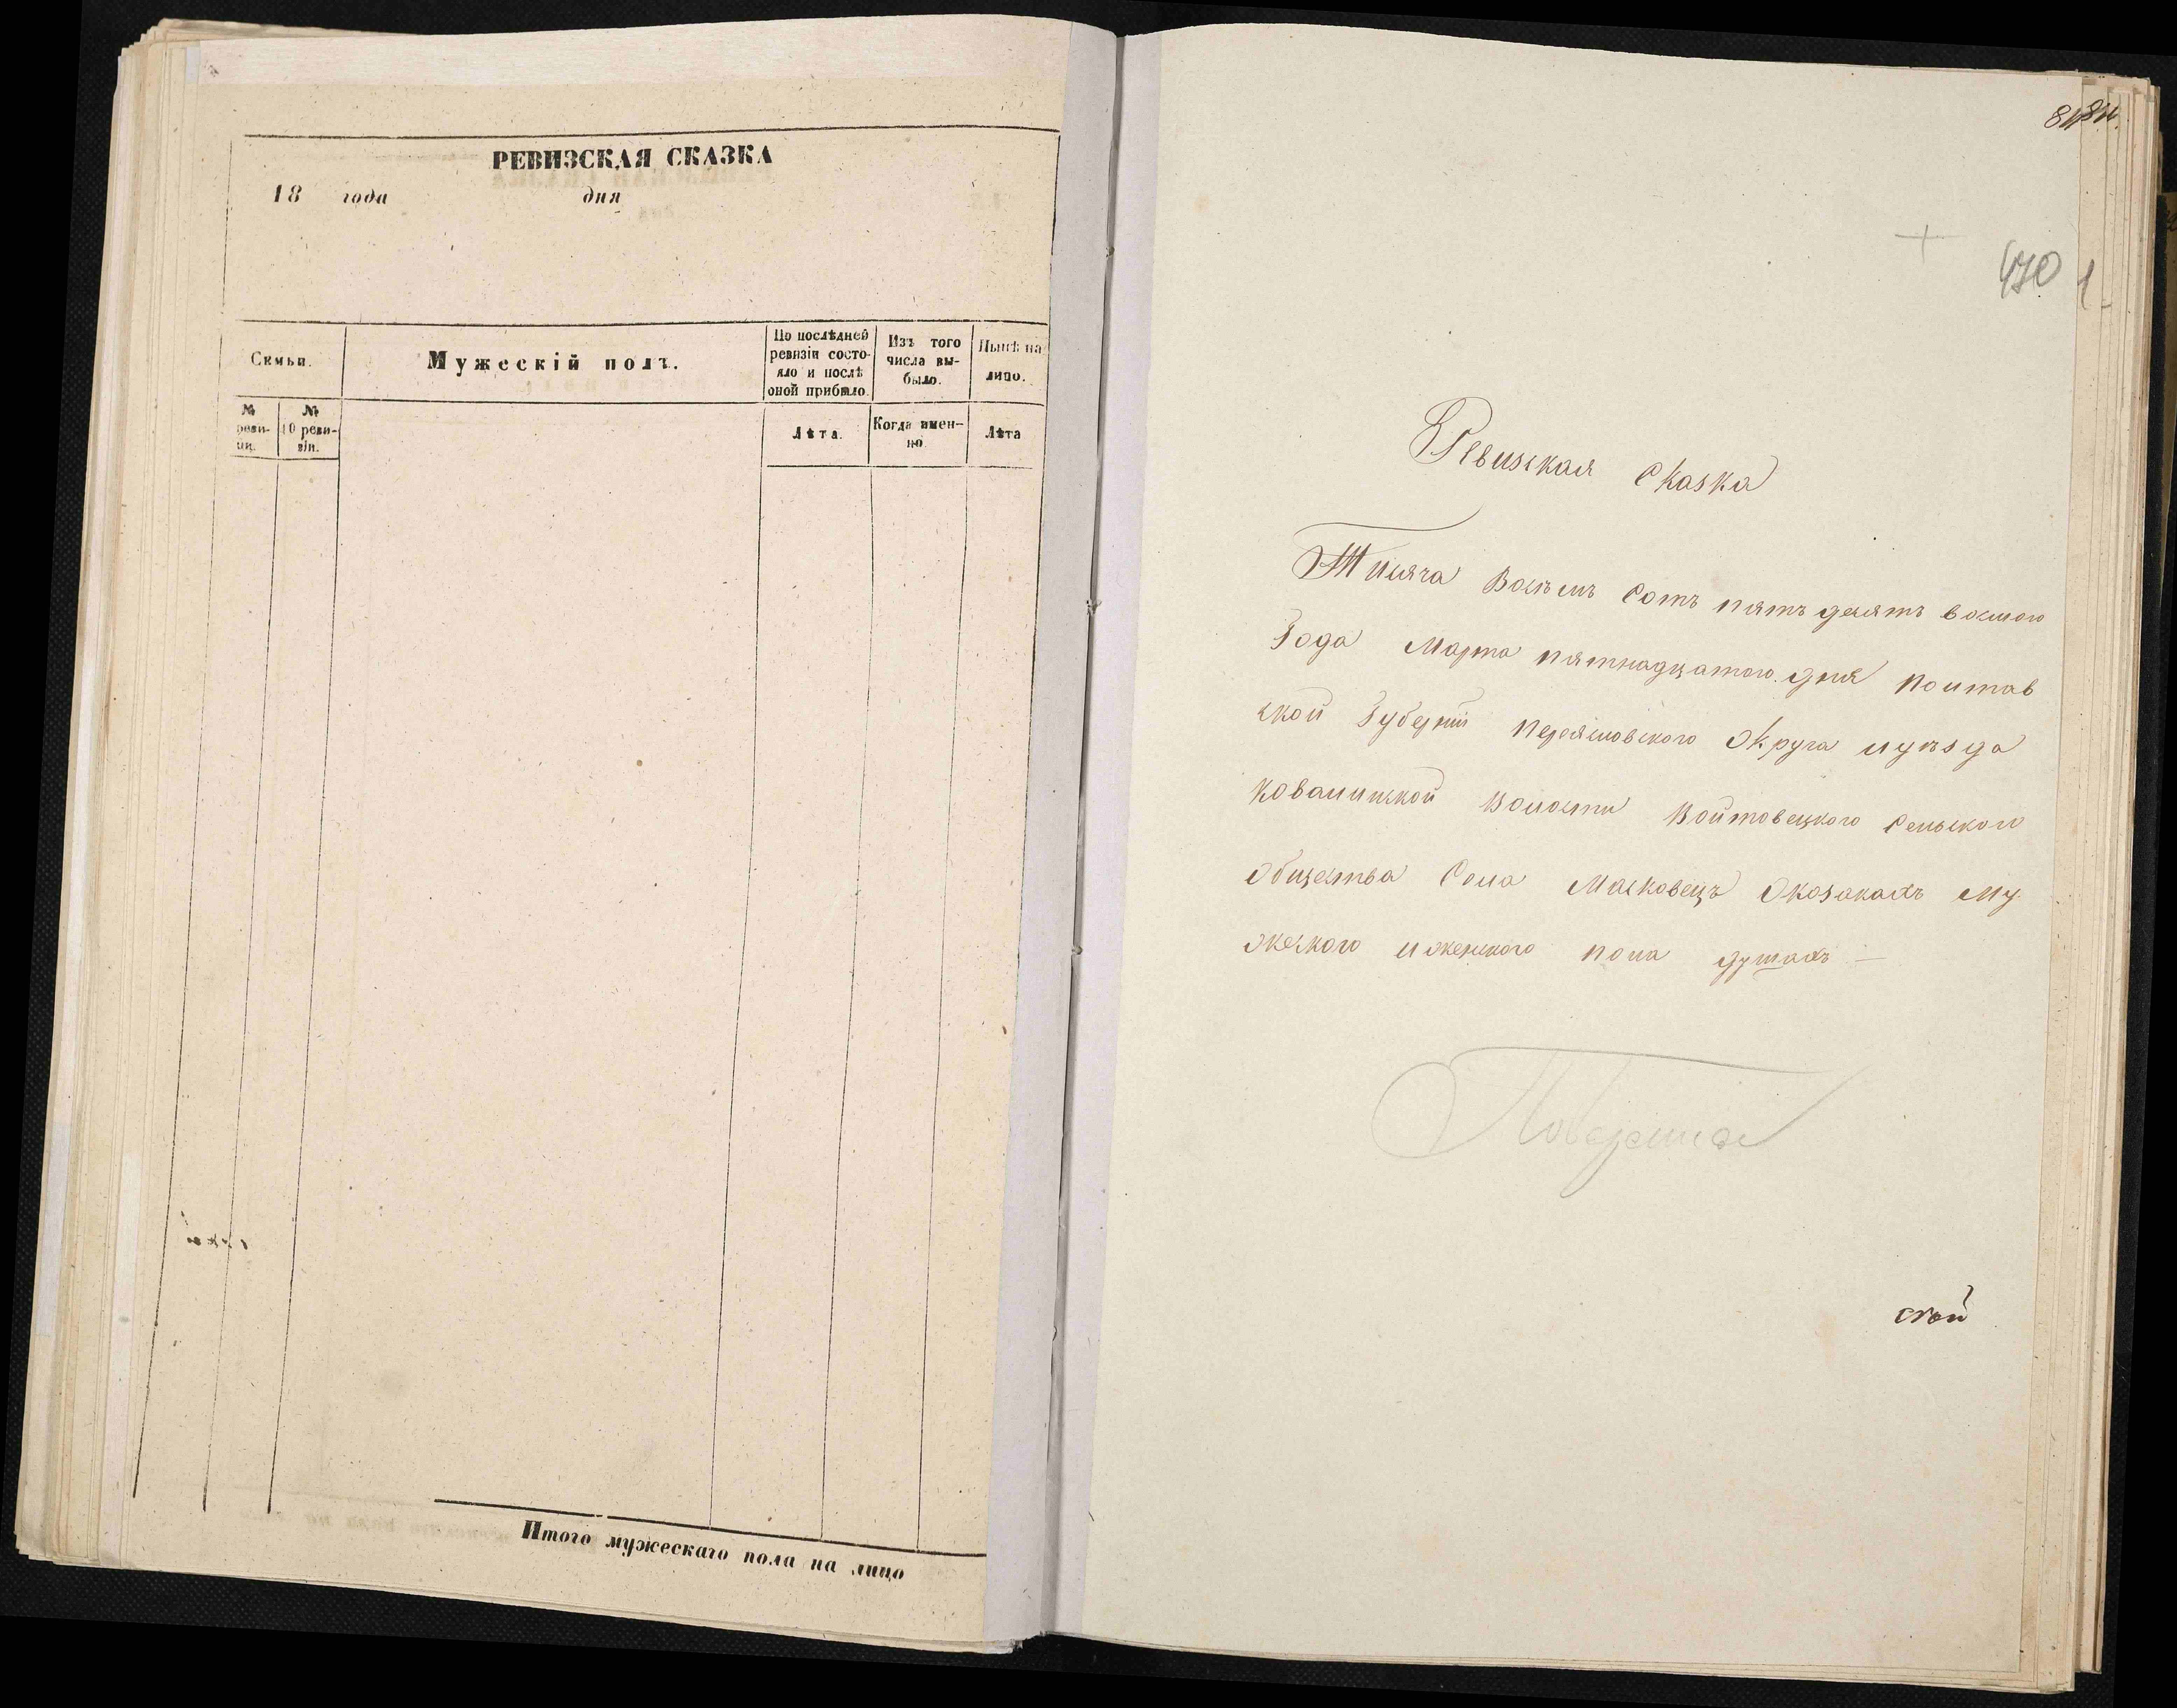 РЕВИЗСКАЯ СКАЗКА
18 года дня
Семьи.
Мужескій полъ.
По послѣдней
ревизіи состо-
яло и послѣ
оной прибыло.
Изъ того
числа вы-
было.
Нынѣ на
лицо.
№
реви-
зіи.
№
10 реви-
зіи.
Лѣта.
Когда имен-
но.
Лѣта
Итого мужескаго пола на лицо
470
Ревизская Сказка
Тисяча Восѣмъ Сотъ пятъ десятъ восмого
Года Марта пятнадцатого дня Полтав
ской Губерніи Переясловского Округа иуѣзда
Ковалинской Волости Войтовецкого Селского
Общества Села Масковецъ Окозакахъ Му
жеского иженского пола душахъ —
ской